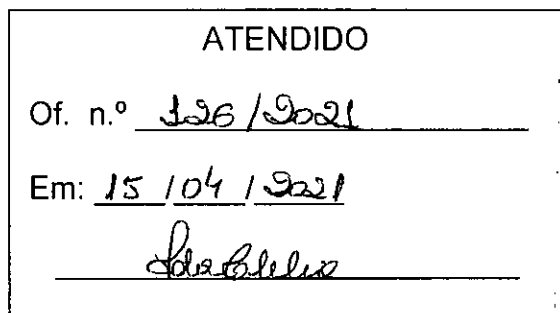 ATENDIDO
Of. n.º 126/2021
Em: 15/04/2021